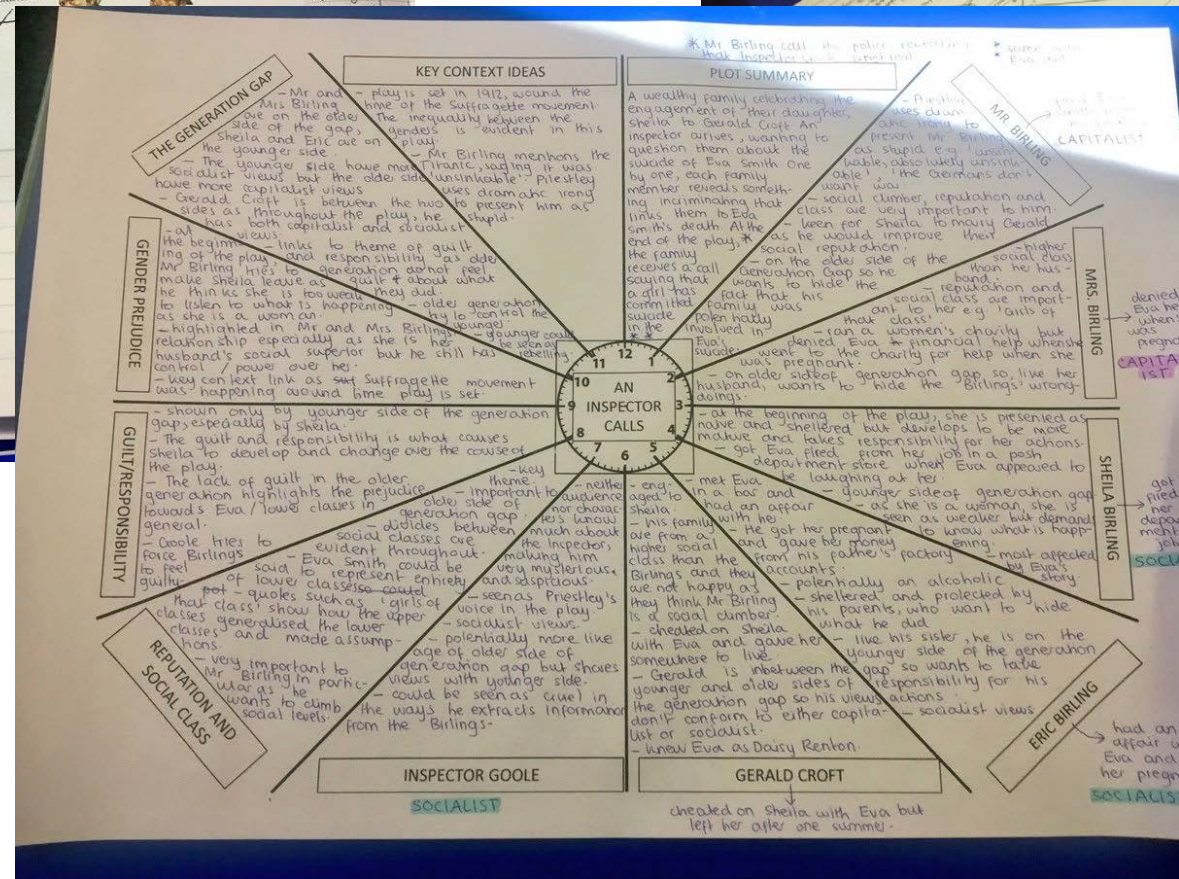 * Mr Birling calls the police
that Inspector Goole
KEY CONTEXT IDEAS
- play is set in 1912, around the
time of the Suffragette movement
- The inequality between the
genders is evident in this
play.
- Mr Birling mentions the
Titanic, saying it was
'unsinkable'. Priestley
uses dramatic irony
to present him as
stupid.
PLOT SUMMARY
A wealthy family celebrating the
engagement of their daughter,
Sheila to Gerald Croft. An
inspector arrives, wanting to
question them about the
suicide of Eva Smith. One
by one, each family
member reveals someth-
ing incriminating that
links them to Eva
Smith's death. At the
end of the play, *
the family
receives a call
saying that
a girl has
committed
suicide
in the
MR BIRLING
- Priestley
uses dram-
atic irony to
present Mr Birling
as stupid e.g. 'unsink-
able, absolutely unsink-
able', 'the Germans don't
want war.'
- social climber, reputation and
class are very important to him.
- keen for Sheila to marry Gerald
as he would improve their
social reputation.
- on the older side of the
Generation Gap so he
wants to hide the
fact that his
family was
potentially
involved in
Eva's
suicide.
CAPITALIST
MRS. BIRLING
- higher
social class
than her hus-
band.
- reputation and
social class are import-
ant to her e.g 'Girls of
that class'
- ran a women's charity but
denied Eva financial help when she
went to the charity for help when she
was pregnant.
- on older side of generation gap so, like her
husband, wants to hide the Birlings' wrong-
doings.
denied
Eva
when
was
CAPITA
IST
SHEILA BIRLING
- at the beginning of the play, she is presented as
naive and sheltered but develops to be more
mature and takes responsibility for her actions.
- got Eva fired from her job in a posh
department store when Eva appeared to
be laughing at her.
- younger side of generation gap
- as she is a woman, she is
seen as weaker but demands
to know what is happ-
ening.
- most affected
by Eva's
story.
got
fired
her
depa
ment
ERIC BIRLING
- met Eva
in a bar and
had an affair
with her.
- He got her pregnant
and gave her money
from his father's factory
accounts.
- potentially an alcoholic
- sheltered and protected by
his parents, who want to hide
what he did
- like his sister, he is on the
younger side of the generation
gap so wants to take
responsibility for his
actions.
- socialist views
had an
affair
Eva and
her
GERALD CROFT
- eng-
aged to
Sheila
- his family
are from a
higher social
class than the
Birlings and they
are not happy as
they think Mr Birling
is a social climber.
- cheated on Sheila
with Eva and gave her
somewhere to live.
- Gerald is inbetween the
younger and older sides of
the generation gap so his views
don't conform to either capita-
list or socialist.
- knew Eva as Daisy Renton.
cheated on Sheila with Eva but
left her after one summer.
INSPECTOR GOOLE
- neither
audience
nor charac-
ters know
much about
the Inspector,
making him
very mysterious
and suspicious.
- seen as Priestley's
voice in the play
- socialist views.
- potentially more like
age of older side of
generation gap but shares
views with younger side.
- could be seen as cruel in
the ways he extracts information
from the Birlings.
SOCIALIST
REPUTATION AND
SOCIAL CLASS
- key
theme.
- important to
older side of
generation gap.
- divides between
social classes are
evident throughout.
- Eva Smith could be
said to represent entirety
of lower classes
- quotes such as 'girls of
that class' show how the upper
classes generalised the lower
classes and made assump-
tions.
- very important to
Mr Birling in partic-
ular as he
wants to climb
social levels.
GUILT/RESPONSIBILITY
- shown only by younger side of the generation
gap, especially by Sheila.
- The guilt and responsibility is what causes
Sheila to develop and change over the cause of
the play.
- The lack of guilt in the older
generation highlights the prejudice
towards Eva / lower classes in
general.
- Goole tries to
force Birlings
to feel
guilty.
GENDER PREJUDICE
- at
the beginn-
ing of the play,
Mr Birling tries to
make Sheila leave as
he thinks she is too weak
to listen to what is happening
as she is a woman.
- highlighted in Mr and Mrs Birling's
relationship especially as she is her
husband's social superior but he still has
control / power over her.
- key context link as Suffragette movement
was happening around time play is set.
THE GENERATION GAP
- Mr and
Mrs Birling
are on the older
side of the gap,
Sheila and Eric are on
the younger side.
- The younger side have more
socialist views but the older side
have more capitalist views
- Gerald Croft is between the two
sides as throughout the play, he
has both capitalist and socialist
views.
- links to theme of guilt
and responsibility as older
generation do not feel
guilt about what
they did.
- older generation
try to control the
younger.
- younger could
be seen as
rebelling.
AN
INSPECTOR
CALLS
12
1
2
3
4
5
6
7
8
9
10
11